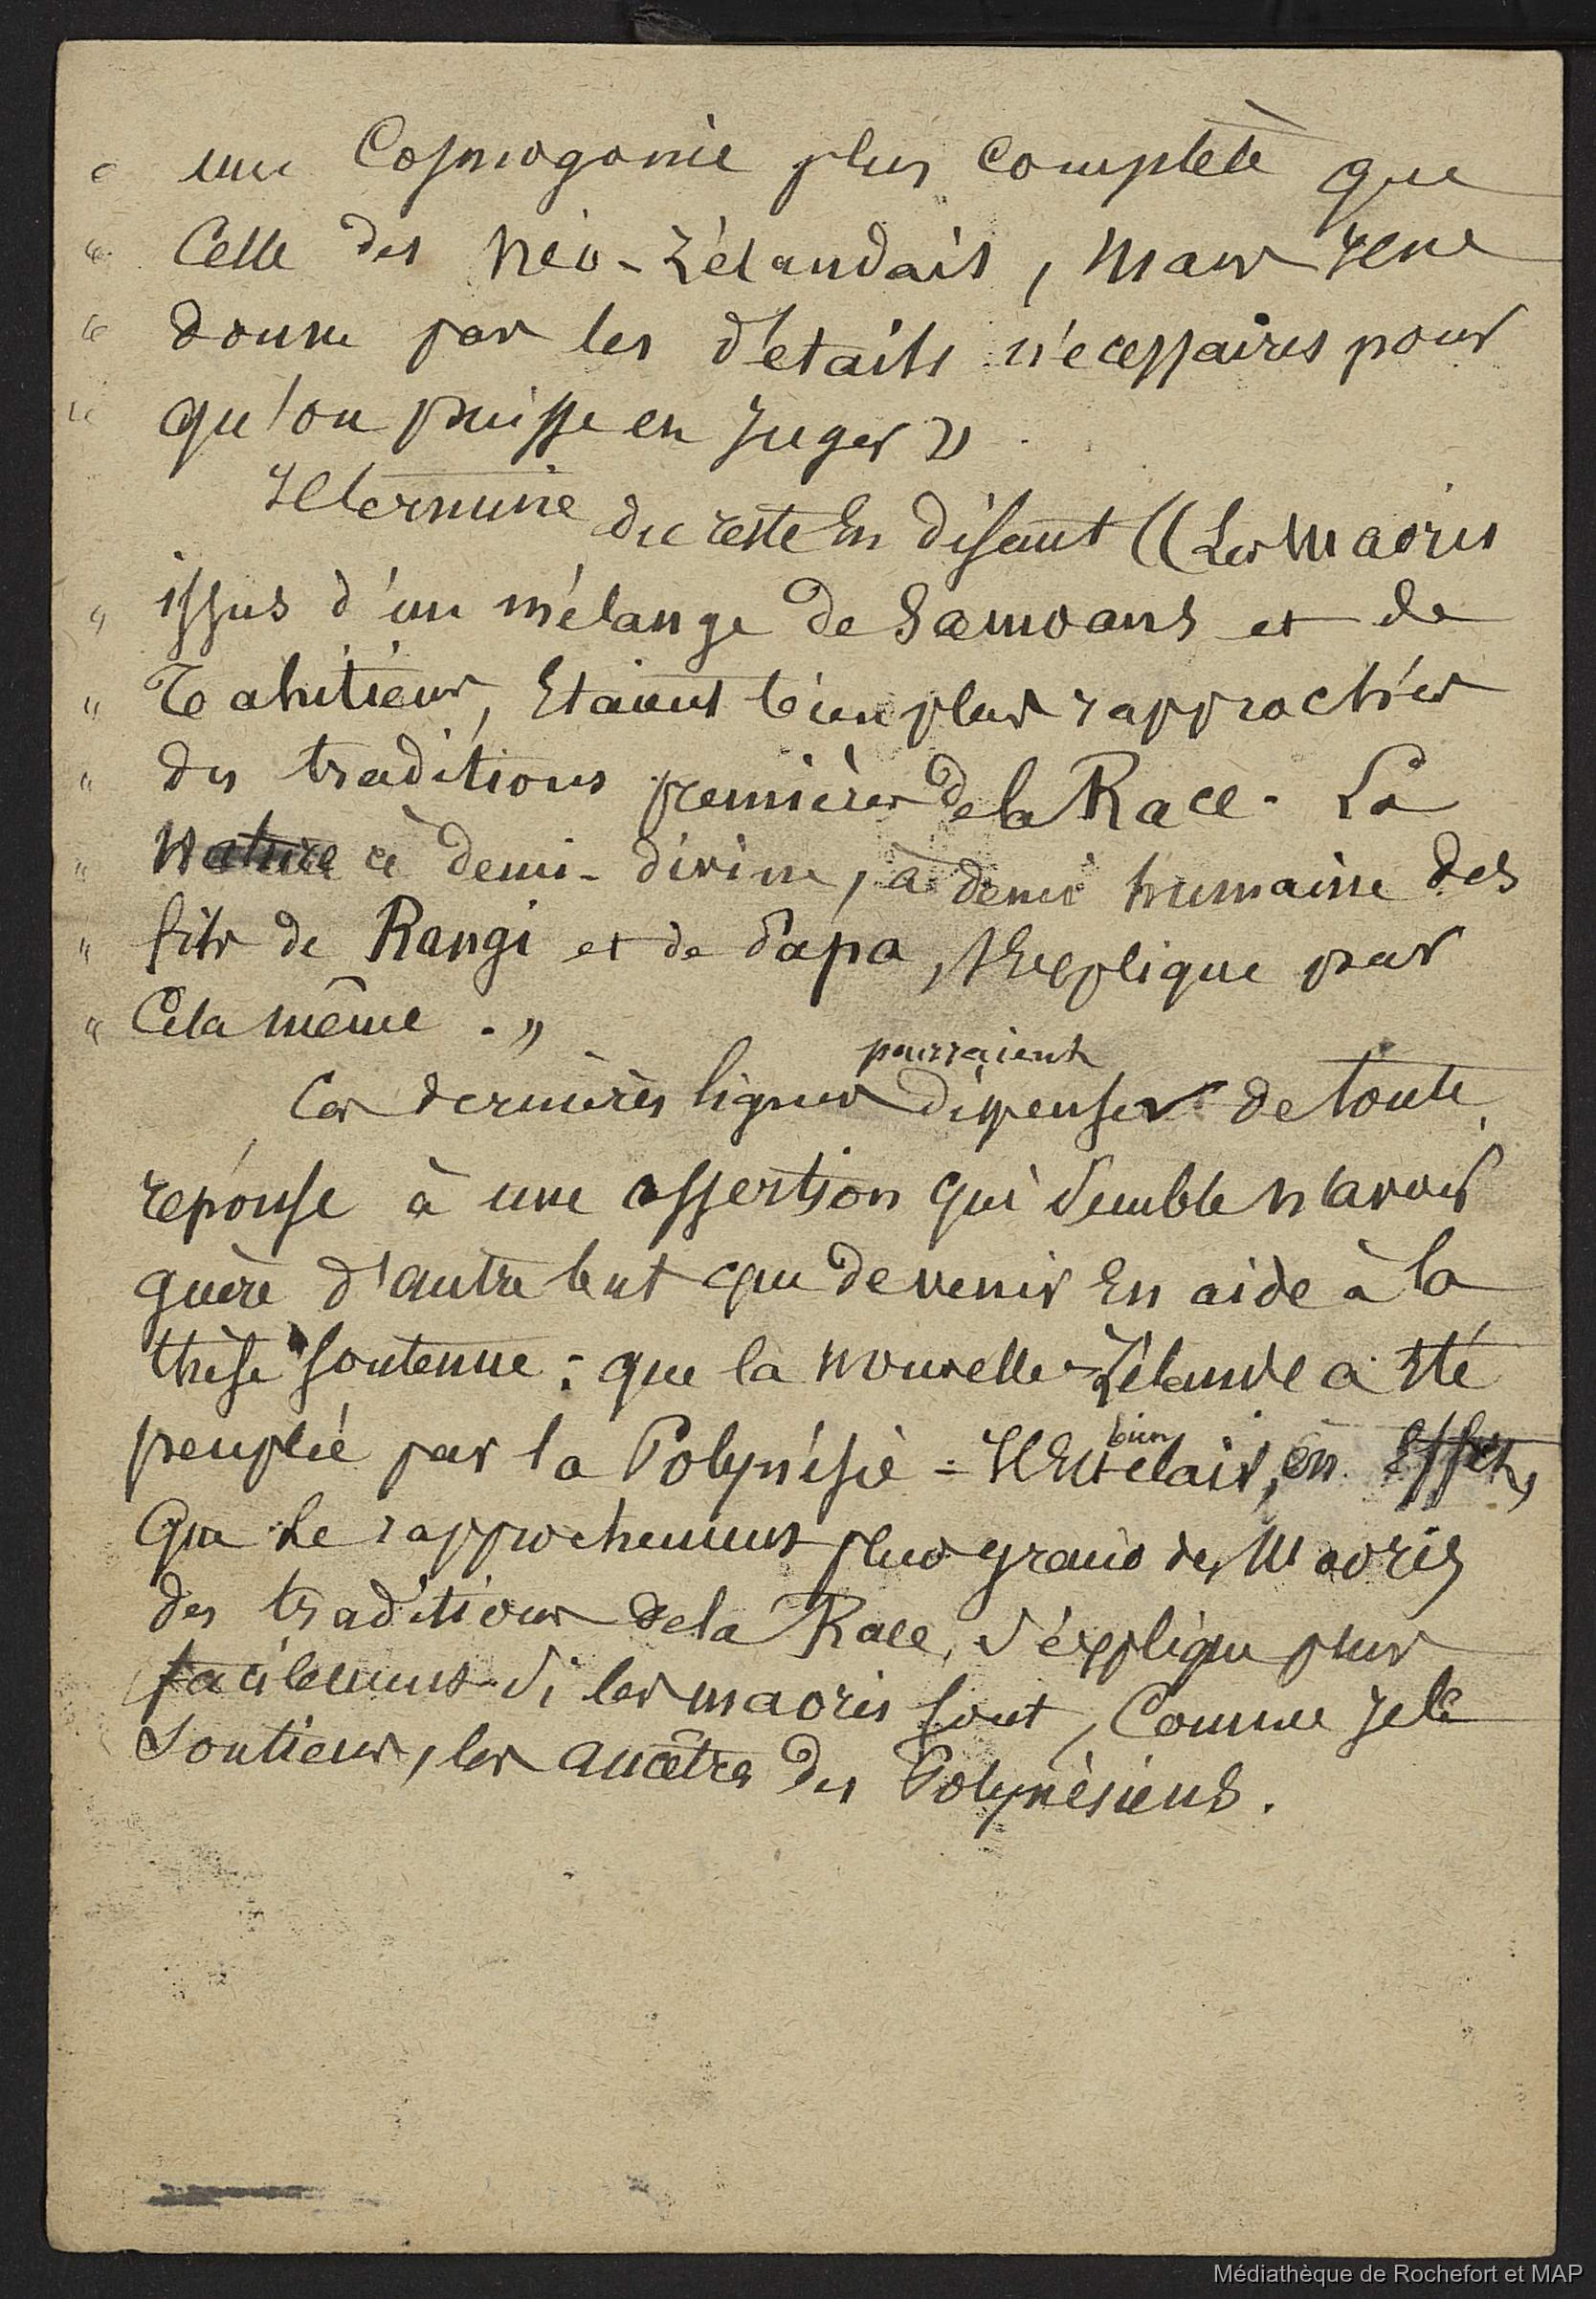 « une Cosmogonie plus complète que
« Celle des Néo-Zélandais, mais il ne
« donne pas les détails nécessaires pour
« qu'on puisse en juger »
Il termine du reste en disant « Les Maoris
« issus d'un mélange de Samoans et de
« Tahitiens, étaient bien plus rapprochés
« des traditions premières de la Race. La
« Nature à demi-divine, à demi humaine des
« fils de Rangi et de Papa, s'explique par
« Cela même. »
pourraient
Ces dernières lignes dispenser de toute
réponse à une assertion qui semble n'avoir
guère d'autre but que de venir en aide à la
thèse soutenue : que la Nouvelle-Zélande a été
bien
peuplée par la Polynésie - Il est clair, en effet,
Que le rapprochement plus grand des Maoris
des traditions de la Race, s'explique plus
facilement si les maoris sont, Comme je le
Soutiens, les ancêtres des Polynésiens.
Médiathèque de Rochefort et MAP